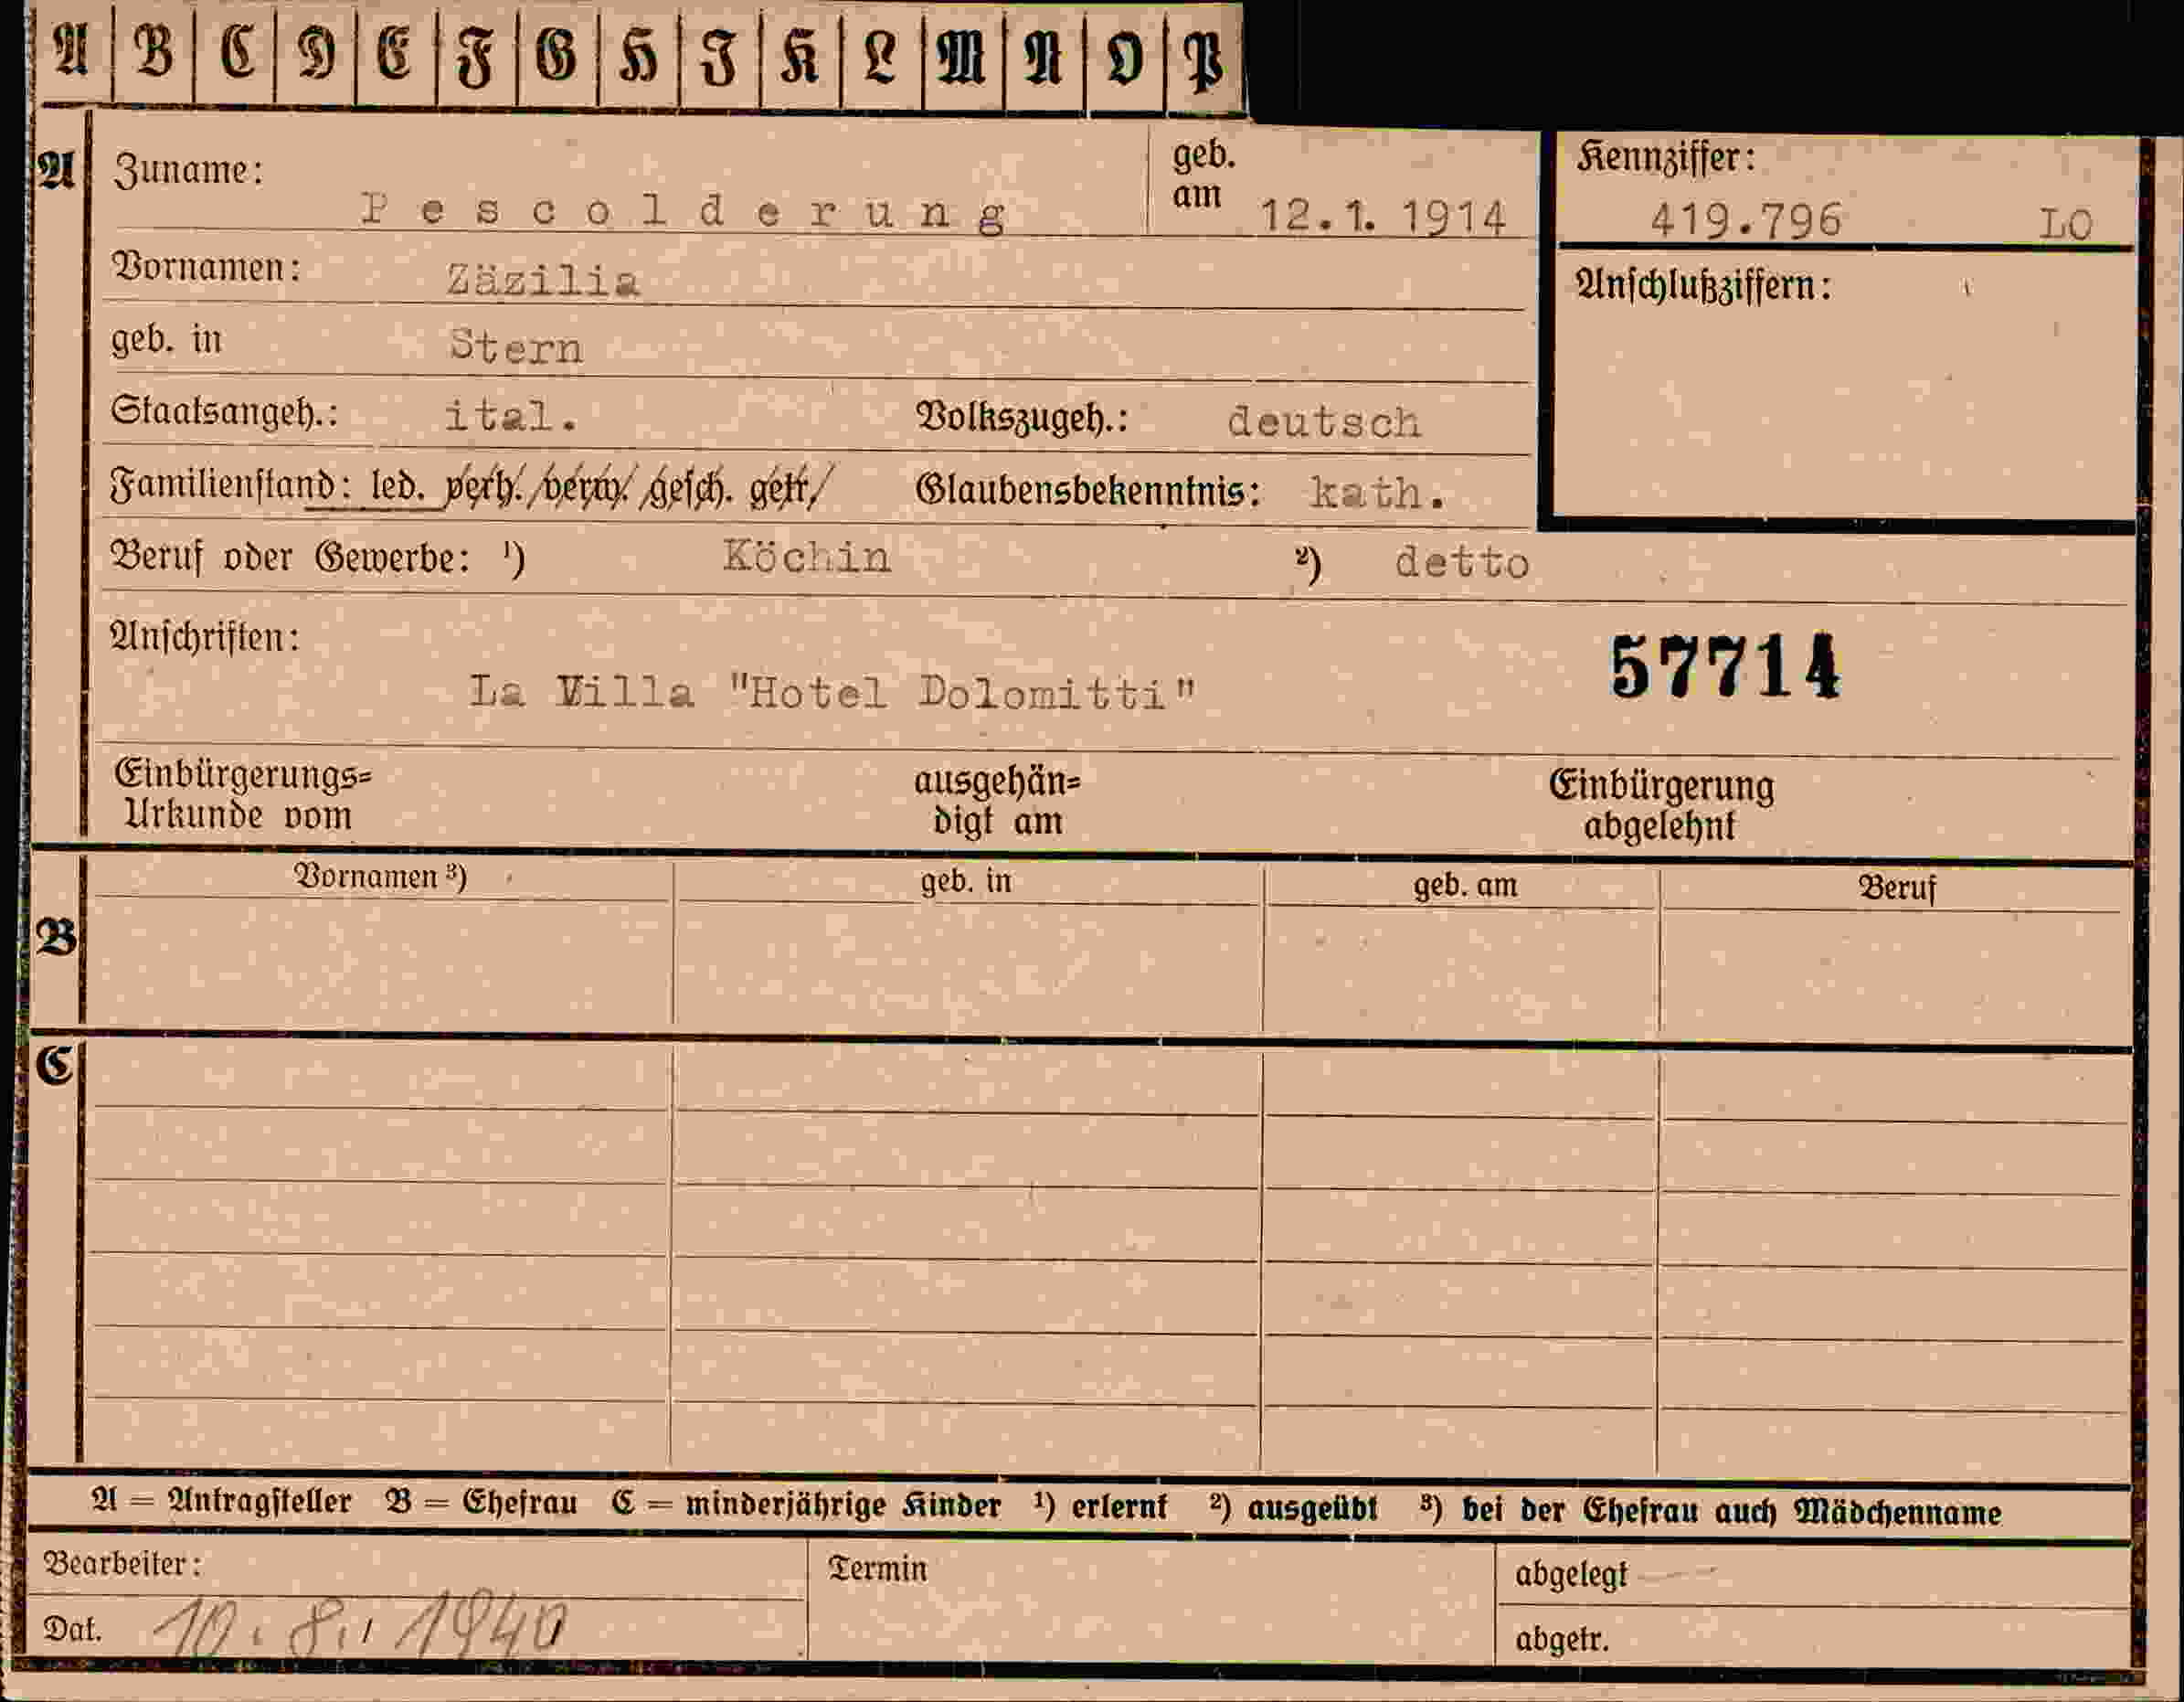 A B C D E F G H I K L M N O P
A Zuname: Pescolderung geb. am 12.1. 1914 Kennziffer: 419.796 LO
Vornamen: Zäzilia Anschlußziffern:
geb. in Stern
Staatsangeh.: ital. Volkszugeh.: deutsch
Familienstand: led. verh. verw. gesch. getr. Glaubensbekenntnis: kath.
Beruf oder Gewerbe: ¹) Köchin ²) detto
Anschriften: 57714
La Villa "Hotel Dolomitti"
Einbürgerungs= ausgehän= Einbürgerung
Urkunde vom digt am abgelehnt
Vornamen ³) geb. in geb. am Beruf
B
C
A = Antragsteller B = Ehefrau C = minderjährige Kinder ¹) erlernt ²) ausgeübt ³) bei der Ehefrau auch Mädchenname
Bearbeiter: Termin abgelegt
Dat. 10. 8. 1940 abgetr.